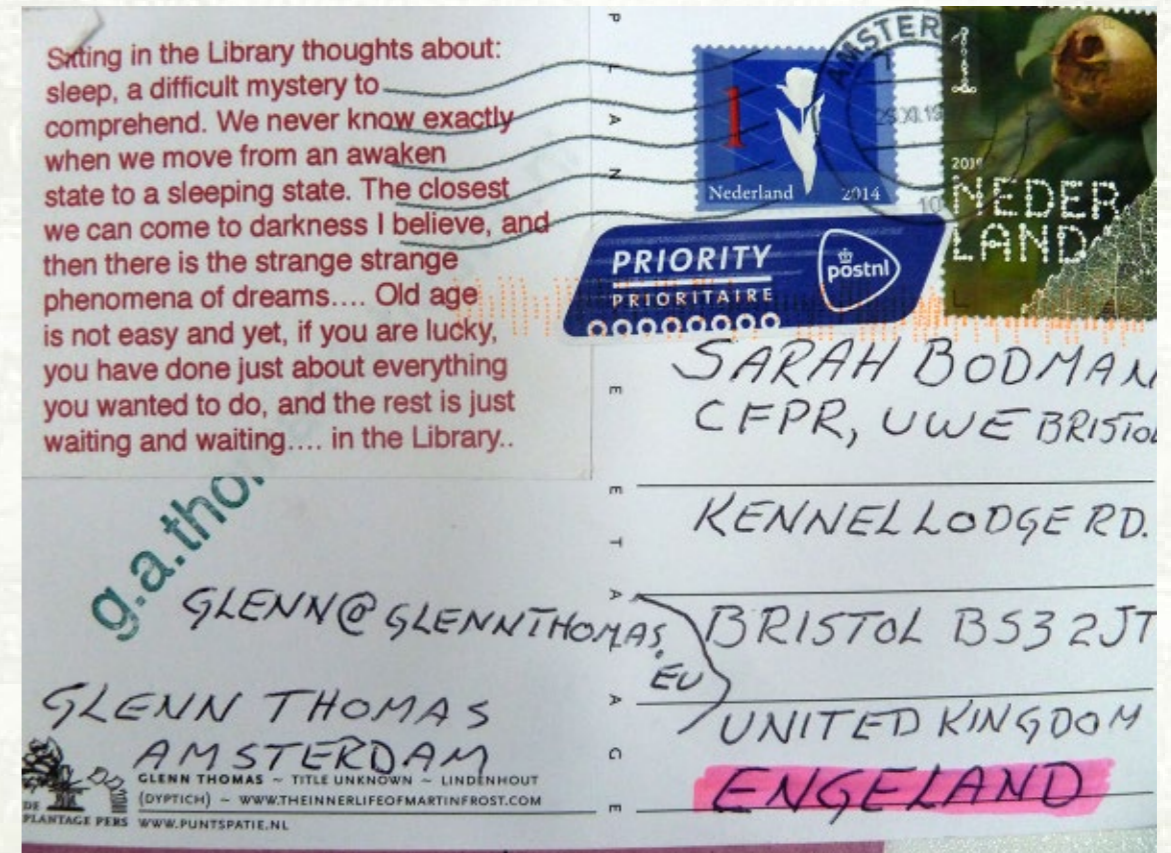 Sitting in the Library thoughts about:
sleep, a difficult mystery to
comprehend. We never know exactly
when we move from an awaken
state to a sleeping state. The closest
we can come to darkness I believe, and
then there is the strange strange
phenomena of dreams.... Old age
is not easy and yet, if you are lucky,
you have done just about everything
you wanted to do, and the rest is just
waiting and waiting.... in the Library..
g.a.tho
GLENN@GLENNTHOMAS.
EU
GLENN THOMAS
AMSTERDAM
GLENN THOMAS ~ TITLE UNKNOWN ~ LINDENHOUT
(DYPTICH) ~ WWW.THEINNERLIFEOFMARTINFROST.COM
WWW.PUNTSPATIE.NL
DE
PLANTAGE PERS
PLAN
ETAGE
AMSTER
1
Nederland 2014
1
2019
NEDER
LAND
PRIORITY
PRIORITAIRE
postnl
SARAH BODMAN
CFPR, UWE BRISTOL
KENNEL LODGE RD.
BRISTOL BS3 2JT
UNITED KINGDOM
ENGELAND